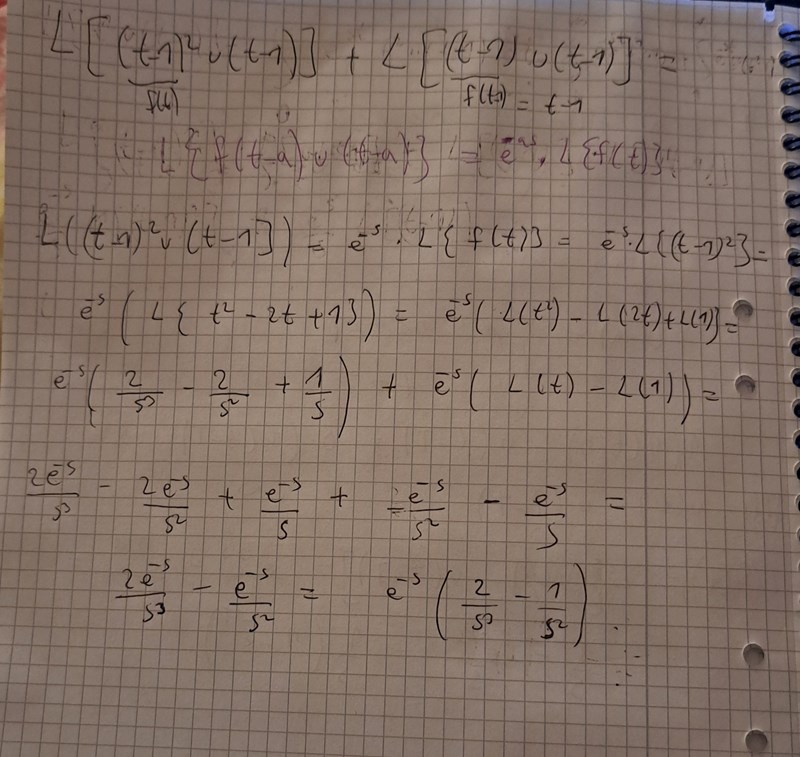 L[(t-1)²u(t-1)] + L[(t-1)u(t-1)] =
f(t) f(t) = t-1
L{f(t-a)·u(t-a)} = e^-as · L{f(t)}
L((t-1)²u(t-1)) = e^-s · L{f(t)} = e^-s · L{(t-1)²} =
e^-s (L{t² - 2t + 1}) = e^-s (L(t²) - L(2t) + L(1)) =
e^-s (2/s³ - 2/s² + 1/s) + e^-s (L(t) - L(1)) =
2e^-s/s³ - 2e^-s/s² + e^-s/s + e^-s/s² - e^-s/s =
2e^-s/s³ - e^-s/s² = e^-s (2/s³ - 1/s²)